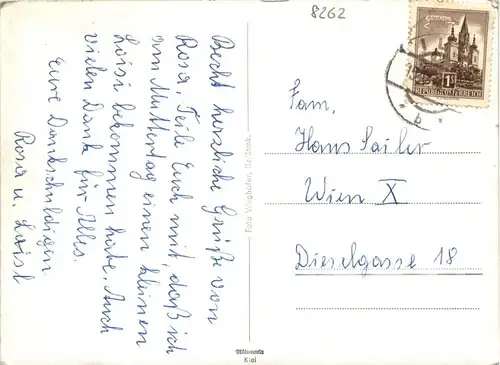 8262
Recht herzliche Grüße von
Rosa. Teile Euch mit, daß ich
am Muttertag einen kleinen
Loisi bekommen habe. Auch
vielen Dank für Alles.
Eure Dankschuldigen
Rosa u. Loisl
Fam.
Hans Sailer
Wien X
Dieselgasse 18
1S
REPUBLIK ÖSTERREICH
b
Kiel